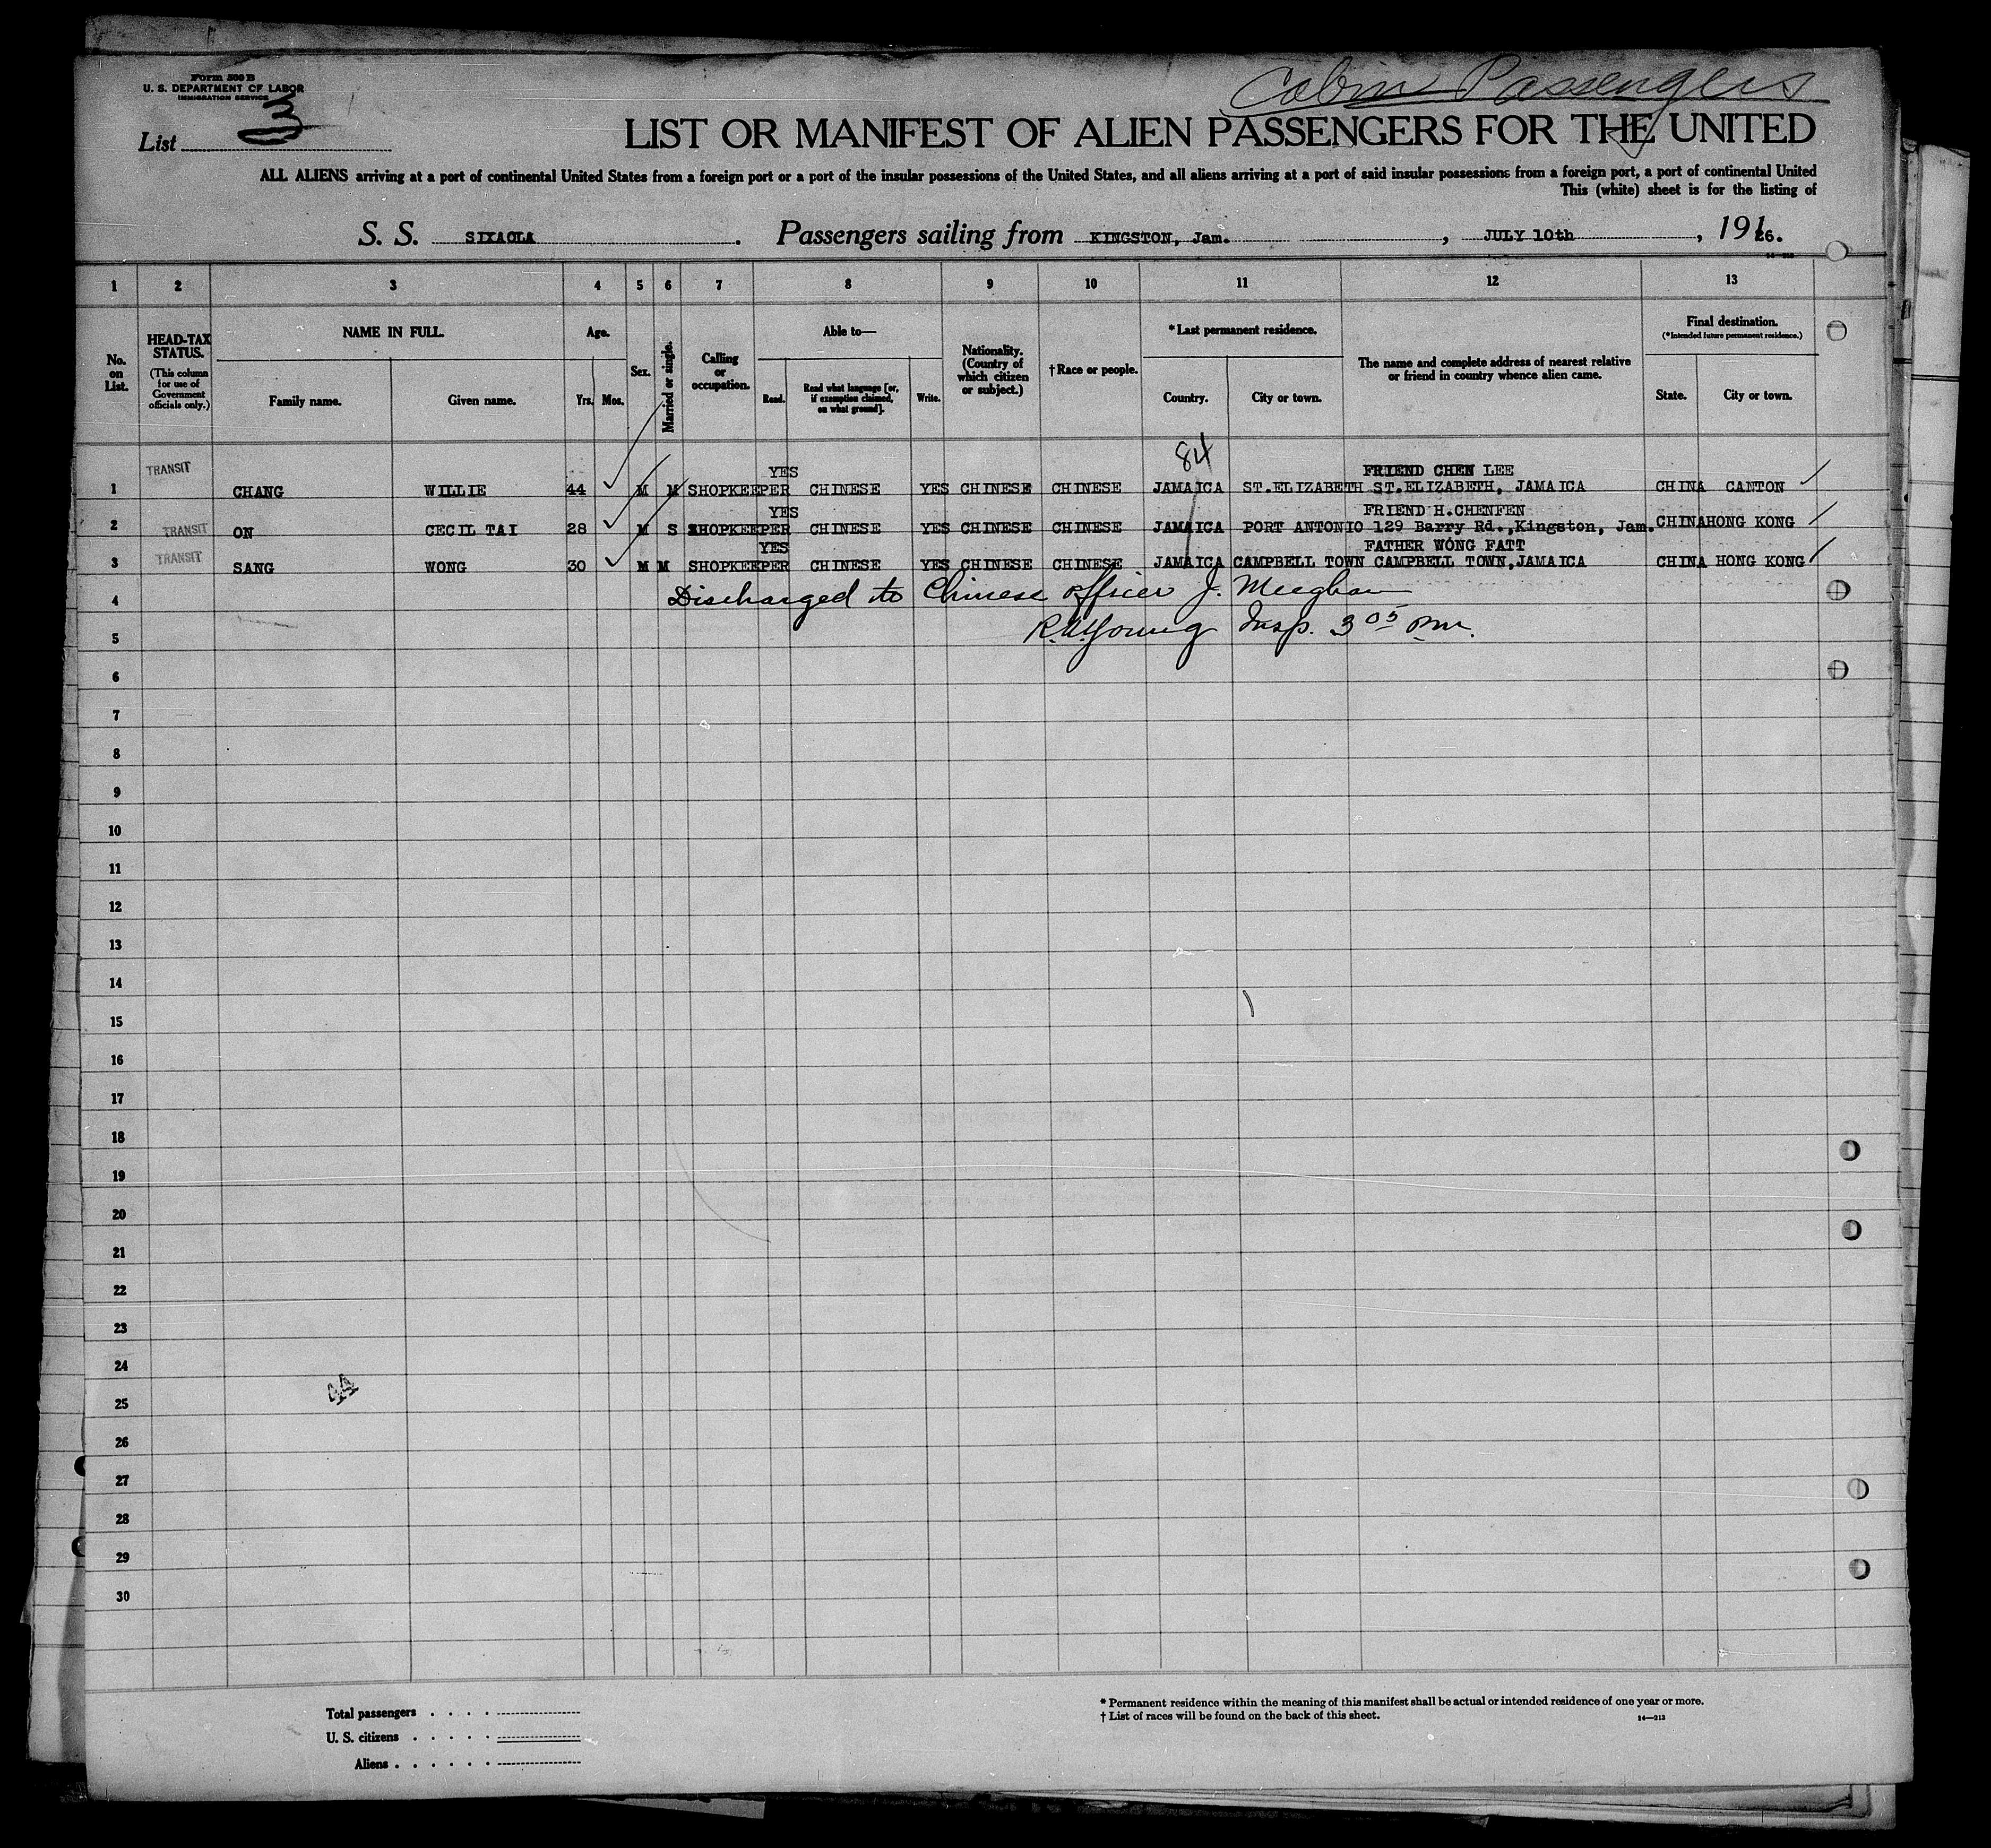 Form 500 B
U. S. DEPARTMENT OF LABOR
IMMIGRATION SERVICE
Cabin Passengers
List 3
LIST OR MANIFEST OF ALIEN PASSENGERS FOR THE UNITED
ALL ALIENS arriving at a port of continental United States from a foreign port or a port of the insular possessions of the United States, and all aliens arriving at a port of said insular possessions from a foreign port, a port of continental United
This (white) sheet is for the listing of
S. S. SIXAOLA. Passengers sailing from KINGSTON, Jam., JULY 10th, 1926.
1 2 3 4 5 6 7 8 9 10 11 12 13
No. on List.
HEAD-TAX STATUS.
(This column for use of Government officials only.)
NAME IN FULL.
Family name. Given name.
Age.
Yrs. Mos.
Sex.
Married or single.
Calling or occupation.
Able to—
Read. Read what language [or, if exemption claimed, on what ground]. Write.
Nationality. (Country of which citizen or subject.)
†Race or people.
*Last permanent residence.
Country. City or town.
The name and complete address of nearest relative or friend in country whence alien came.
Final destination.
(*Intended future permanent residence.)
State. City or town.
84
TRANSIT YES FRIEND CHEN LEE
1 CHANG WILLIE 44 M M SHOPKEEPER CHINESE YES CHINESE CHINESE JAMAICA ST.ELIZABETH ST.ELIZABETH, JAMAICA CHINA CANTON
YES FRIEND H.CHENFEN
2 TRANSIT ON CECIL TAI 28 M S SHOPKEEPER CHINESE YES CHINESE CHINESE JAMAICA PORT ANTONIO 129 Barry Rd.,Kingston, Jam. CHINA HONG KONG
YES FATHER WONG FATT
3 TRANSIT SANG WONG 30 M M SHOPKEEPER CHINESE YES CHINESE CHINESE JAMAICA CAMPBELL TOWN CAMPBELL TOWN,JAMAICA CHINA HONG KONG
4 Discharged to Chinese officer J. Meeghan
5 R.W.Young Insp. 3 05 pm.
6
7
8
9
10
11
12
13
14
15
16
17
18
19
20
21
22
23
24
44
25
26
27
28
29
30
Total passengers
U. S. citizens
Aliens
* Permanent residence within the meaning of this manifest shall be actual or intended residence of one year or more.
† List of races will be found on the back of this sheet.
14—213